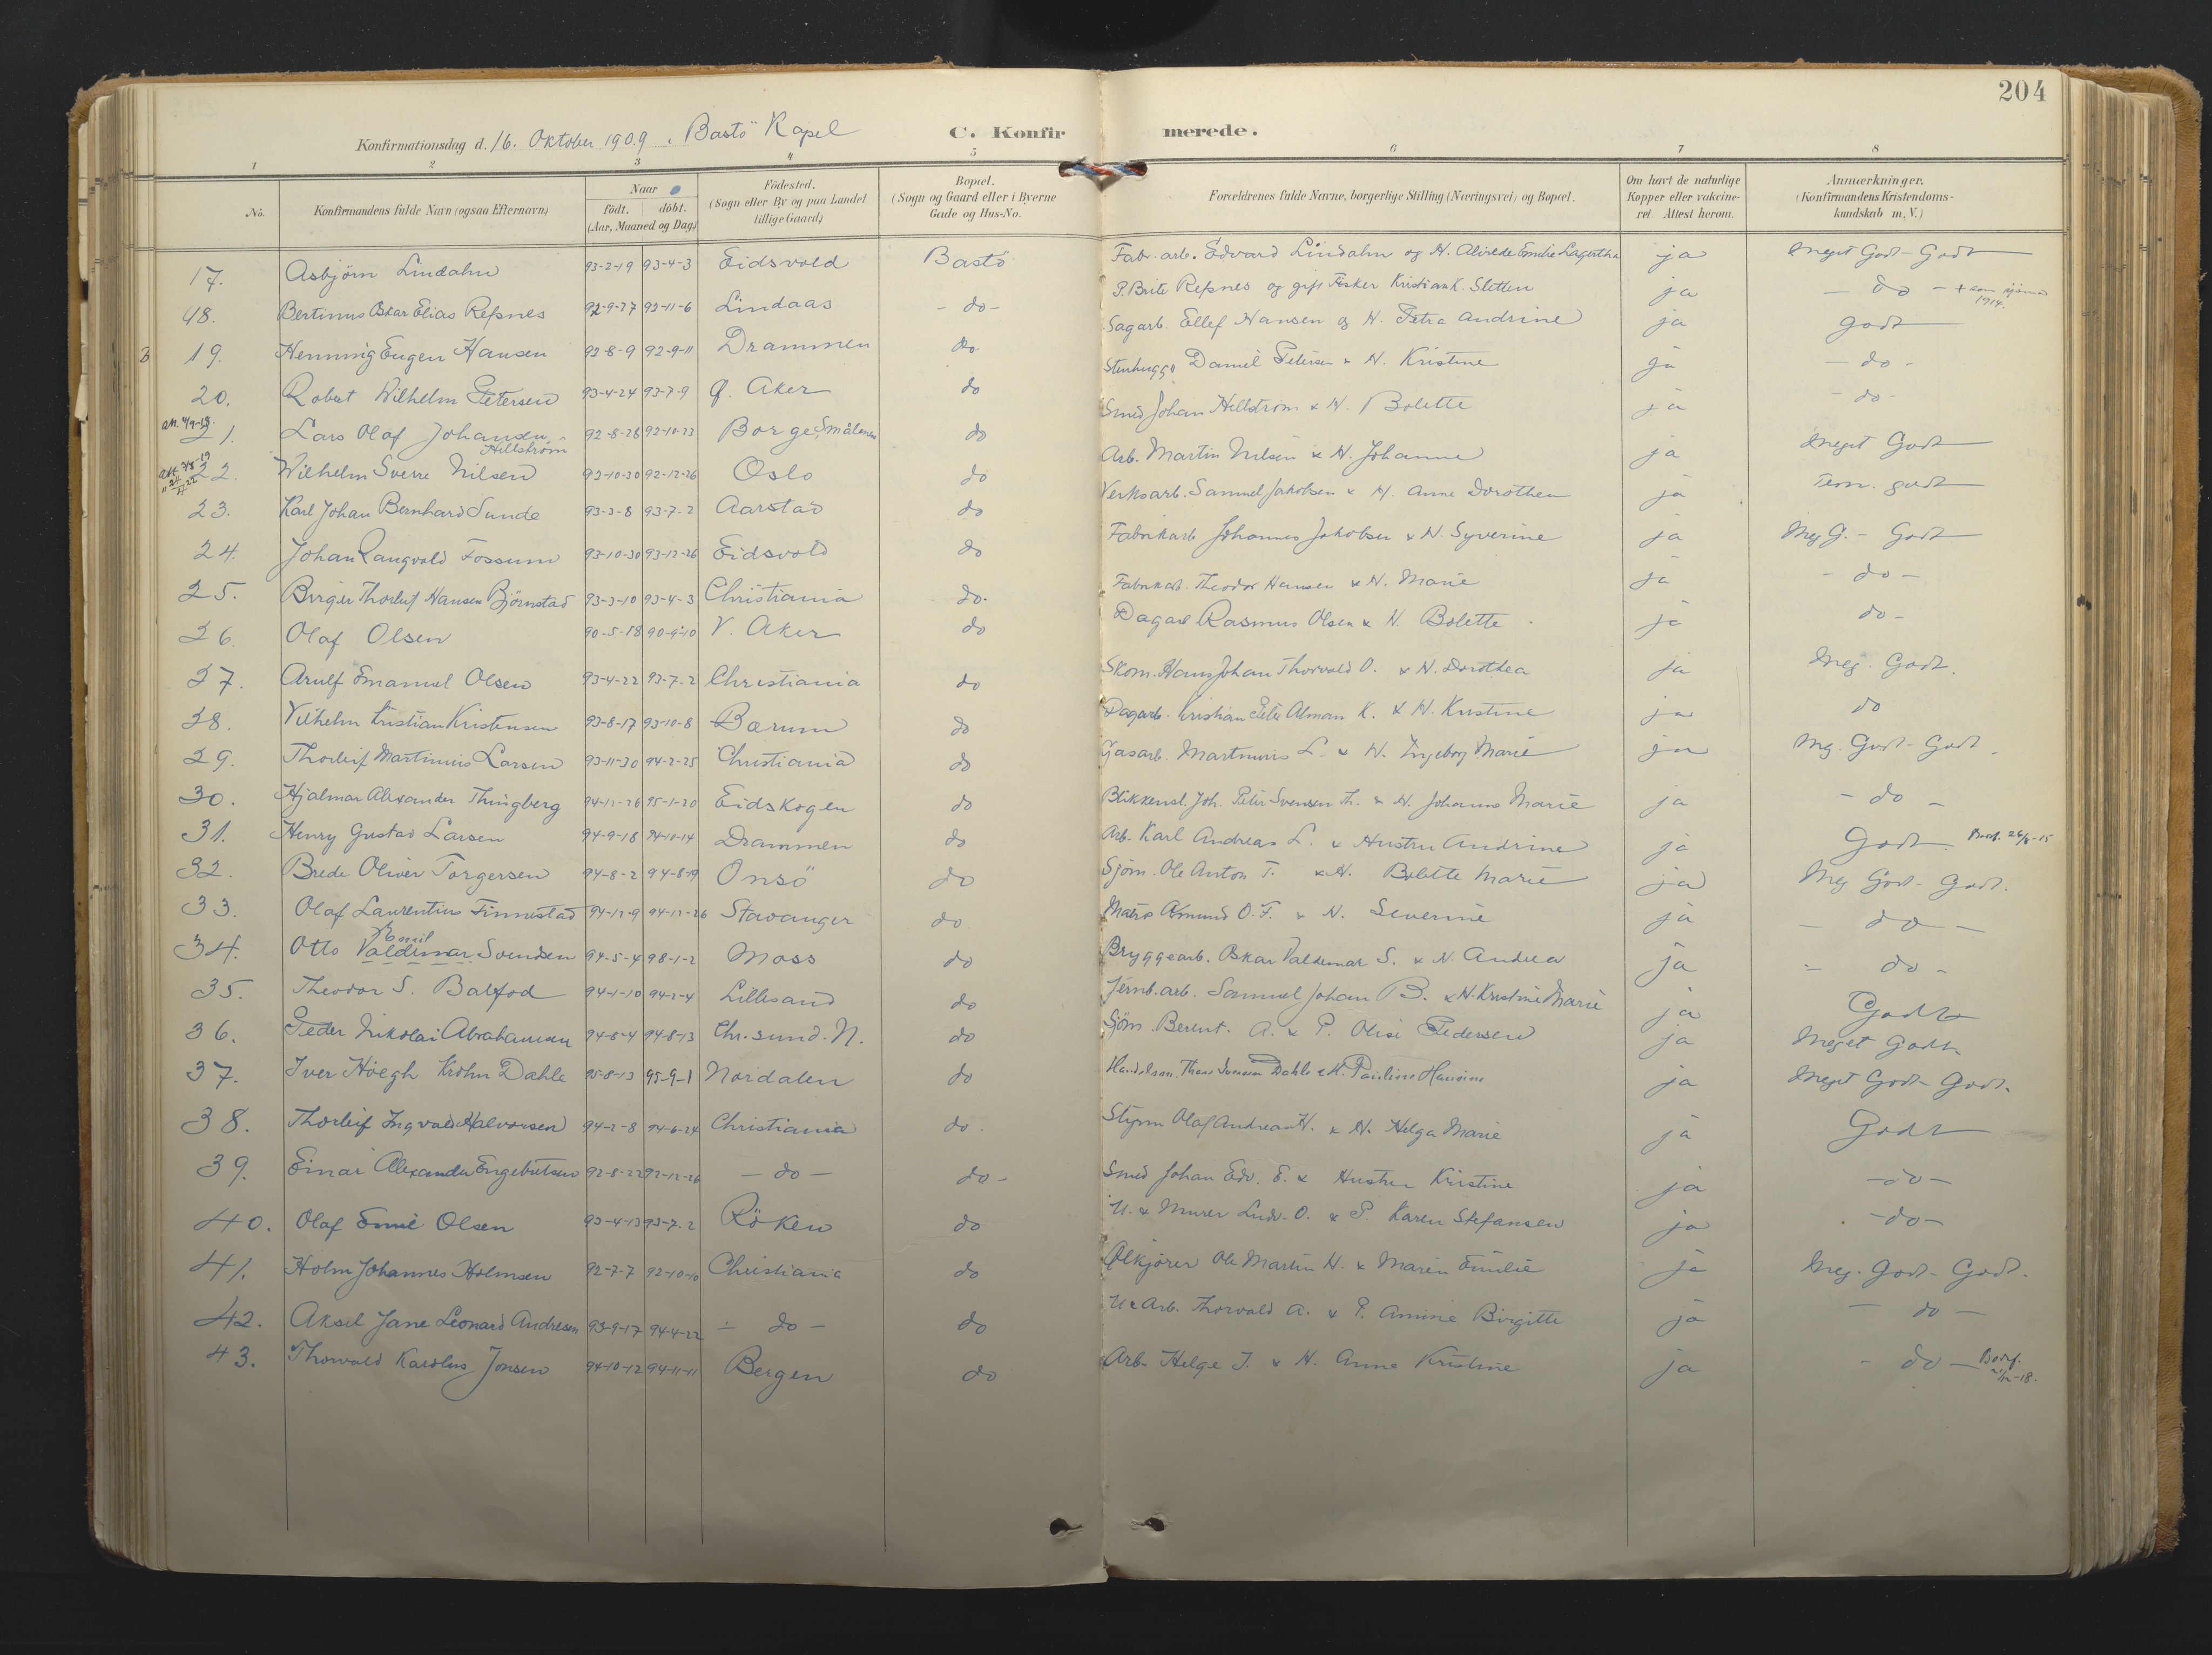 204
Konfirmationsdag d. 16. Oktober 1909. Bastö Kapel C. Konfirmerede.
1 2 3 4 5 6 7 8
No. Konfirmandens fulde Navn (ogsaa Efternavn) Naar födt. döbt. (Aar, Maaned og Dag) Födested. (Sogn eller By og paa Landet tillige Gaard) Bopæl. (Sogn og Gaard eller i Byerne Gade og Hus-No. Forældrenes fulde Navne, borgerlige Stilling (Næringsvei) og Bopæl. Om havt de naturlige Kopper eller vakcineret. Attest herom. Anmærkninger. (Konfirmandens Kristendomskundskab m. V.)
17. Asbjörn Lindahn 93-2-19 93-4-3 Eidsvold Bastö Fab. arb. Edvard Lindahn og H. Alvilde Emilie Lagertha ja Meget Godt - Godt
18. Bertinus Oskar Elias Refsnes 92-9-27 92-11-6 Lindaas - do - P. Brite Refsnes og gift Fisker Kristian K. Sletten ja - do - + som sjömand 1914.
3 19. Henning Eugen Hansen 92-8-9 92-9-11 Drammen do Sagarb. Ellef Hansen og H. Petra Andrine ja godt
20. Robert Wilhelm Petersen 93-4-24 93-7-9 Ø. Aker do Stenhugger Daniel Petersen & H. Kristine ja - do -
21. Lars Olaf Johansen Hellström 92-8-28 92-10-23 Borge, Smålenene do Smed Johan Hellström & H. Bolette ja - do -
22. Wilhelm Sverre Nilsen 92-10-30 92-12-26 Oslo do Arb. Martin Nilsen & H. Johanne ja Meget Godt
23. Karl Johan Bernhard Sunde 93-3-8 93-7-2 Aarstad do Verksarb. Samuel Jakobsen & H. Anne Dorothea ja Tem. godt
24. Johan Rangvald Fossum 93-10-30 93-12-26 Eidsvold do Fabrikarb. Johannes Jakobsen & H. Syverine ja Meg G. - Godt
25. Birger Thorleif Hansen Björnstad 93-3-10 93-4-3 Christiania do. Fabrikarb. Theodor Hansen & H. Marie ja - do -
26. Olaf Olsen 90-5-18 90-9-10 V. Aker do Dagarb Rasmus Olsen & H. Bolette ja do -
27. Arnulf Emanuel Olsen 93-4-22 93-7-2 Christiania do Skom. Hans Johan Thorvald O. & H. Dorothea ja Meg. Godt.
28. Vilhelm Kristian Kristensen 93-8-17 93-10-8 Bærum do Dagarb. Kristian Peter Alman K. & H. Kristine ja do
29. Thorleif Martinius Larsen 93-11-30 94-2-25 Christiania do Gasarb. Martinius L. & H. Ingeborg Marie ja Mg. Godt - Godt.
30. Hjalmar Alexander Thingberg 94-12-26 95-1-20 Eidskogen do Blikkensl. Joh. Peter Svensen Th. & H. Johanne Marie ja - do -
31. Henry Gustav Larsen 94-9-18 94-10-14 Drammen do Arb. Karl Andreas L. & Hustru Andrine ja Godt.
32. Brede Oliver Torgersen 94-8-2 94-8-19 Onsö do Sjöm. Ole Anton T. & H. Bolette Marie ja Meg Godt - Godt.
33. Olaf Laurentius Finnestad 94-12-9 94-12-26 Stavanger do Matros Amund O. F. & H. Severine ja - do -
34. Otto Valdemar Emil Svendsen 94-5-4 98-1-2 Moss do Bryggearb. Oskar Valdemar S. & H. Andrea ja - do -
35. Theodor S. Balfod 94-1-10 94-2-4 Lillesand do Jernb. arb. Samuel Johan B. & H. Kristine Marie ja Godt
36. Peder Nikolai Abrahamsen 94-8-4 94-8-13 Chr. sund. N. do Sjöm. Berent. A. & P. Olise Pedersen ja Meget Godt.
37. Iver Höegh Krohn Dahle 95-8-13 95-9-1 Nordalen do Handelsm. Dahle & H. Pauline Hansine ja Meget Godt - Godt.
38. Thorleif Ingvald Halvorsen 94-2-8 94-6-24 Christiania do. Styrm Olaf Andreas H. & H. Helga Marie ja Godt
39. Einar Alexander Engebretsen 92-8-22 92-12-26 - do - do - Smed Johan Edv. E. & Hustru Kristine ja - do -
40. Olaf Emil Olsen 93-4-13 93-7-2 Röken do U. & Murer Ludv. O. & P. Karen Stefansen ja - do -
41. Holm Johannes Holmsen 92-7-7 92-10-10 Christiania do Ølkjörer Ole Martin H. & Maren Emilie ja Meg. Godt - Godt.
42. Aksel Jane Leonard Andresen 93-9-17 94-4-22 - do - do U & Arb. Thorvald A. & P. Amine Birgitte ja - do -
43. Thorvald Karolus Jonsen 94-10-12 94-11-11 Bergen do Arb. Helge J. & H. Anne Kristine ja - do -